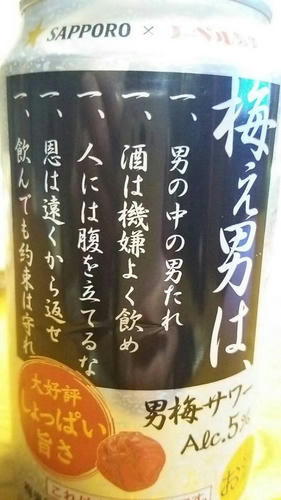 SAPPORO × ノーベル
梅え男は、
一、男の中の男たれ
一、酒は機嫌よく飲め
一、人には腹を立てるな
一、恩は遠くから返せ
一、飲んでも約束は守れ
男梅サワー
Alc.5%
大好評
しょっぱい
旨さ